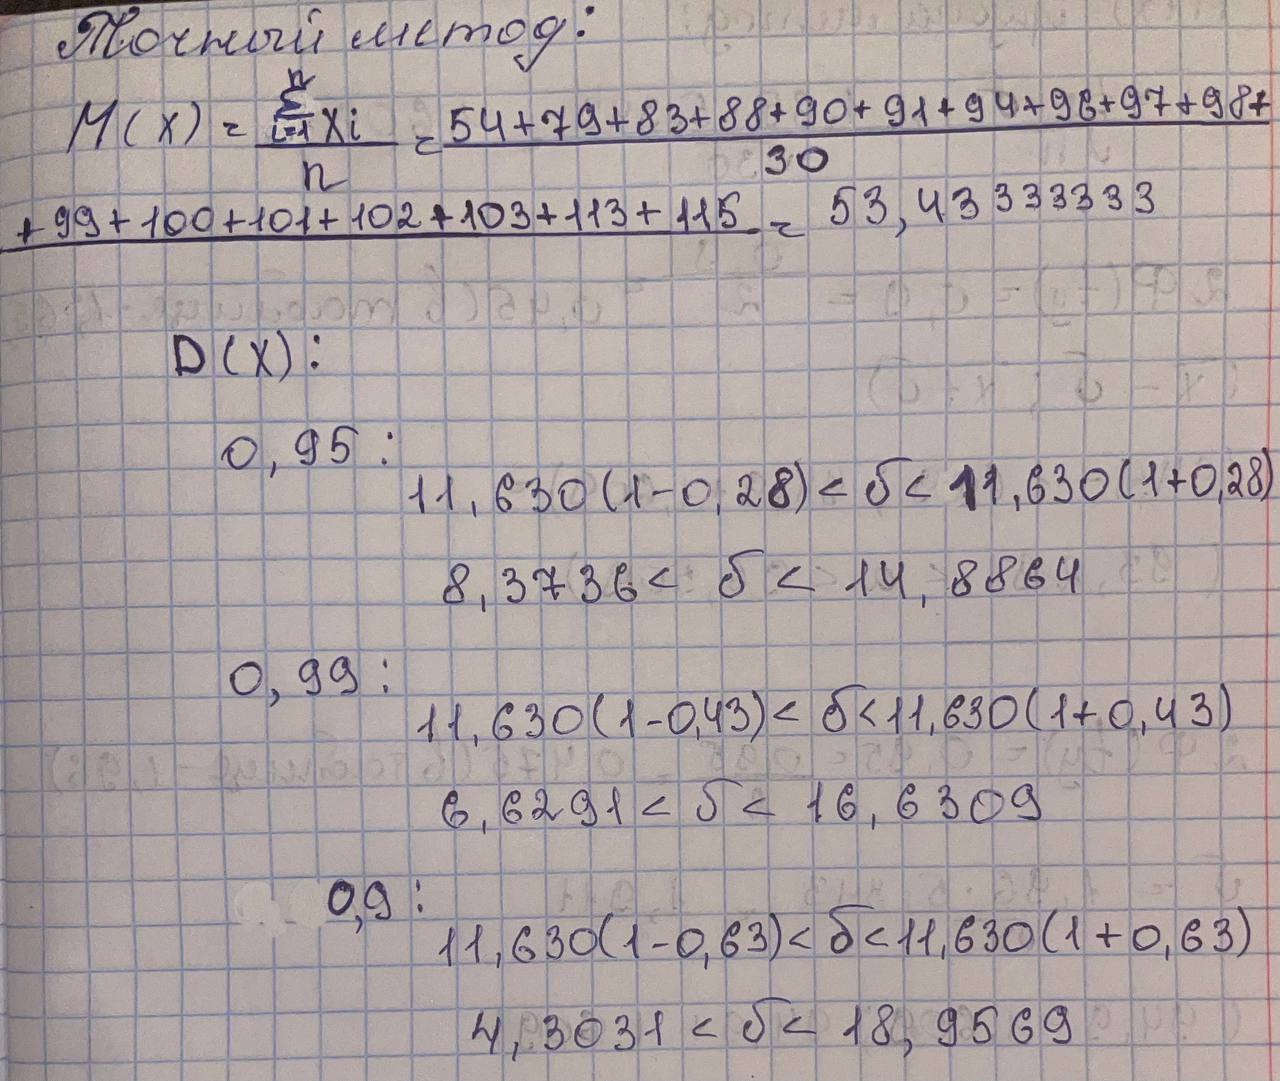 Точный метод:
M(X) = \frac{\sum_{i=1}^{n} xi}{n} = \frac{54+79+83+88+90+91+94+96+97+98+}{30}
+99+100+101+102+103+113+115 = 53,43333333
D(X):
0,95:
11,630(1-0,28)<б<11,630(1+0,28)
8,3736<б<14,8864
0,99:
11,630(1-0,43)<б<11,630(1+0,43)
6,6291<б<16,6309
0,9:
11,630(1-0,63)<б<11,630(1+0,63)
4,3031<б<18,9569